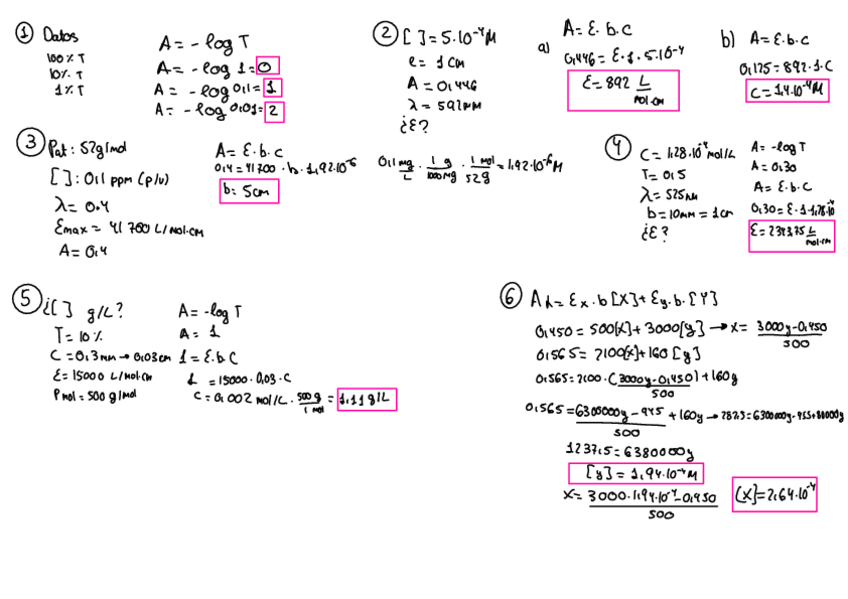 ① Datos
100% T
10% T
1% T
A = - log T
A = - log 1 = 0
A = - log 0,1 = 1
A = - log 0,01 = 2
② [ ] = 5·10⁻⁴ M
e = 1 cm
A = 0,446
λ = 592 nm
¿ε?
a) A = ε·b·c
0,446 = ε·1·5·10⁻⁴
ε = 892 L/mol·cm
b) A = ε·b·c
0,125 = 892·1·C
C = 1,4·10⁻⁴ M
③ Pat: 52g/mol
[ ]: 0,1 ppm (p/v)
λ = 0.4
εmax = 41 700 L/mol·cm
A = 0,4
A = ε·b·c
0,4 = 41700 · b · 1,92·10⁻⁶
b = 5cm
0,1 mg/L · 1 g/1000 mg · 1 mol/52 g = 1,92·10⁻⁶ M
④ C = 1,28·10⁻⁴ mol/L
T = 0,5
λ = 525 nm
b = 10mm = 1 cm
¿ε?
A = -log T
A = 0,30
A = ε·b·c
0,30 = ε·1·1,28·10⁻⁴
ε = 2343,75 L/mol·cm
⑤ ¿[ ] g/L?
T = 10 %
C = 0,3 mm → 0,03 cm
ε = 15000 L/mol·cm
Pmol = 500 g/mol
A = -log T
A = 1
1 = ε·b·C
1 = 15000·0,03·C
C = 0,002 mol/L · 500 g/1 mol = 1,11 g/L
⑥ Aλ = εx·b[X] + εy·b·[Y]
0,450 = 500[x] + 3000[y] → x = 3000y-0,450/500
0,565 = 2100[x] + 160[y]
0,565 = 2100·(3000y-0,450)/500 + 160y
0,565 = 6300000y - 945/500 + 160y → 282,5 = 6300000y - 955 + 80000y
1237,5 = 6380000y
[y] = 1,94·10⁻⁴ M
x = 3000·1,94·10⁻⁴ - 0,450/500
[X] = 2,64·10⁻⁴